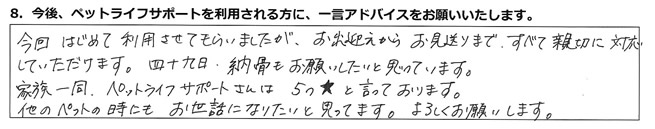 8. 今後、ペットライフサポートを利用される方に、一言アドバイスをお願いいたします。
今回 はじめて 利用させてもらいましたが、お出迎えから お見送りまで、すべて 親切に 対応
していただけます。四十九日・納骨もお願いしたいと思っています。
家族一同、ペットライフサポートさんは 5つ★と言っております。
他のペットの時にも お世話になりたいと思ってます。よろしくお願いします。